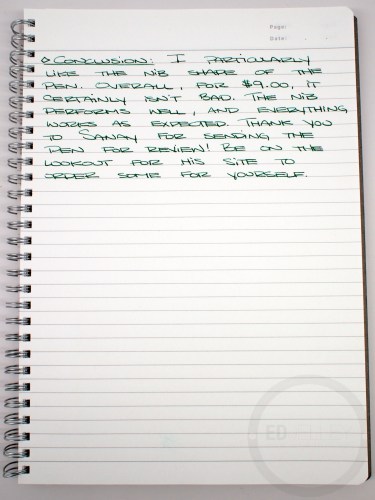 Page:
Date:
◇ CONCLUSION: I PARTICULARLY
LIKE THE NIB SHAPE OF THE
PEN. OVERALL, FOR $9.00, IT
CERTAINLY ISN'T BAD. THE NIB
PERFORMS WELL, AND EVERYTHING
WORKS AS EXPECTED. THANK YOU
TO SANAY FOR SENDING THE
PEN FOR REVIEW! BE ON THE
LOOKOUT FOR HIS SITE TO
ORDER SOME FOR YOURSELF.
ED